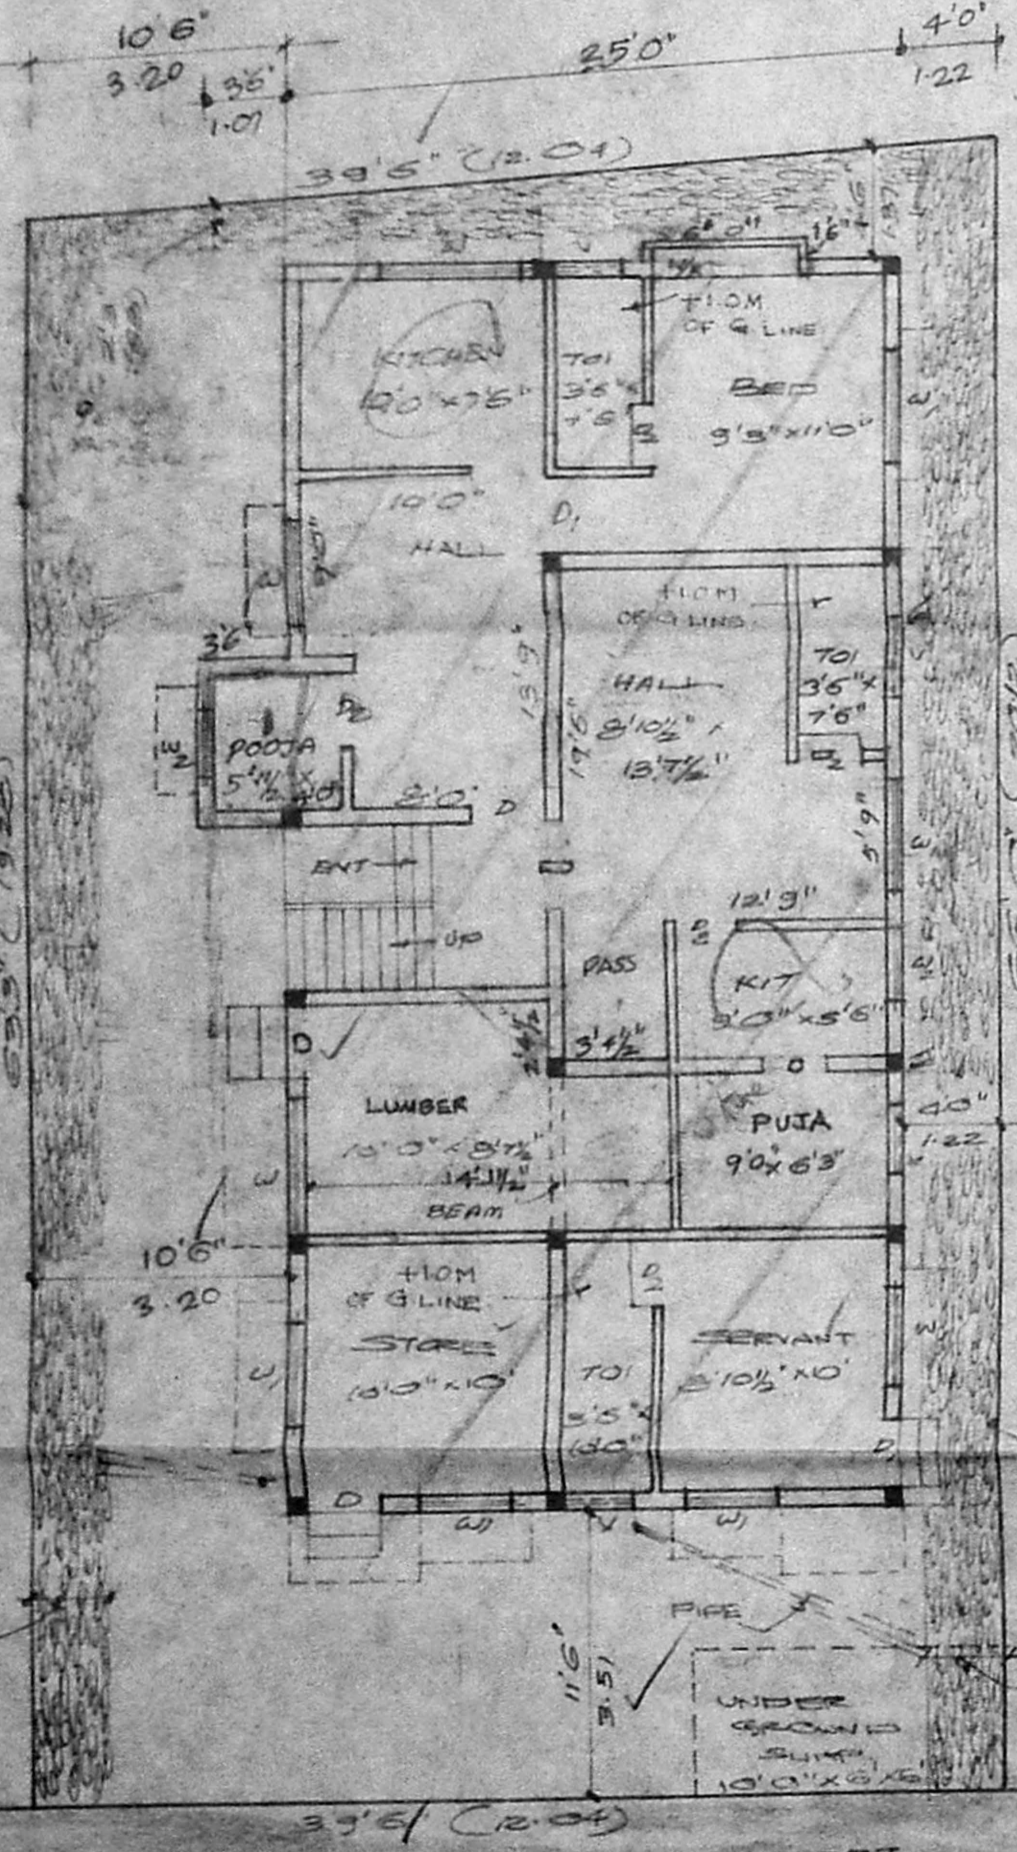 10'6"
3.20
3'6"
1.07
25'0"
4'0"
1.22
39'6" (12.04)
1.37
6'0"
1'6"
+1.0M
OF G LINE
KITCHEN
9'0" x 7'6"
TOI
3'6" x
BED
9'3" x 11'0"
W1
10'0"
HALL
D1
W
3'6"
13'9"
+1.0M
OF G LINE
HALL
8'10½" x
13'7½"
19'6"
TOI
3'6" x
7'6"
D2
POOJA
D2
W2
8'0"
D
5'9"
ENT
UP
12'9"
PASS
D2
KIT
9'0" x 5'6"
W2
D
3'4½"
D
LUMBER
10'0" x 8'7½"
14'1½"
BEAM
PUJA
9'0 x 6'3"
4'0"
1.22
W
10'6"
3.20
+1.0M
OF G.LINE
STORE
10'0" x 10'
W1
TOI
D2
SERVANT
8'10½" x 10'
W1
D1
D
W1
V
W1
PIPE
11'6"
3.51
UNDER
GROUND
SUMP
10'0" x 6' x 6'
39'6" (12.04)